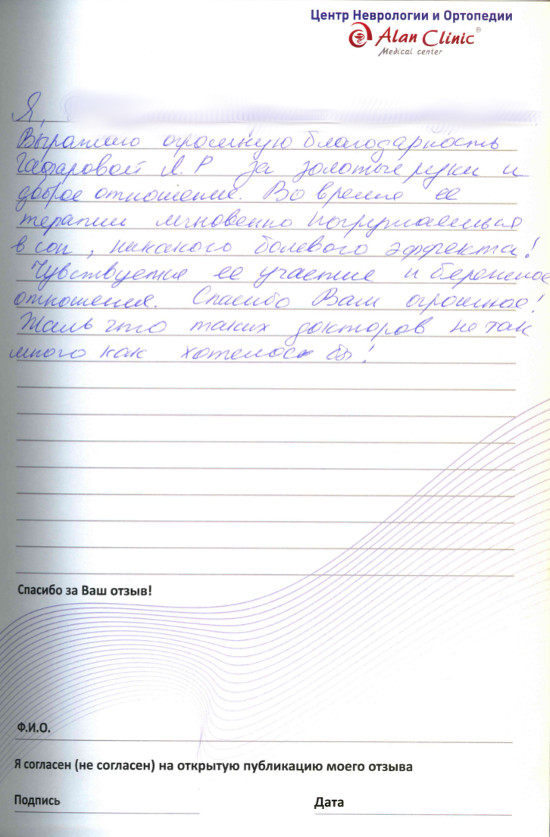 Центр Неврологии и Ортопедии
Alan Clinic®
Medical center
Я,
Выражаю огромную благодарность
Гафаровой Л.Р за золотые руки и
доброе отношение. Во время ее
терапии мгновенно погружаешься
в сон, никакого болевого эффекта!
Чувствуется ее участие и бережное
отношение. Спасибо Вам огромное!
Жаль что таких докторов не так
много как хотелось бы!
Спасибо за Ваш отзыв!
Ф.И.О.
Я согласен (не согласен) на открытую публикацию моего отзыва
Подпись
Дата